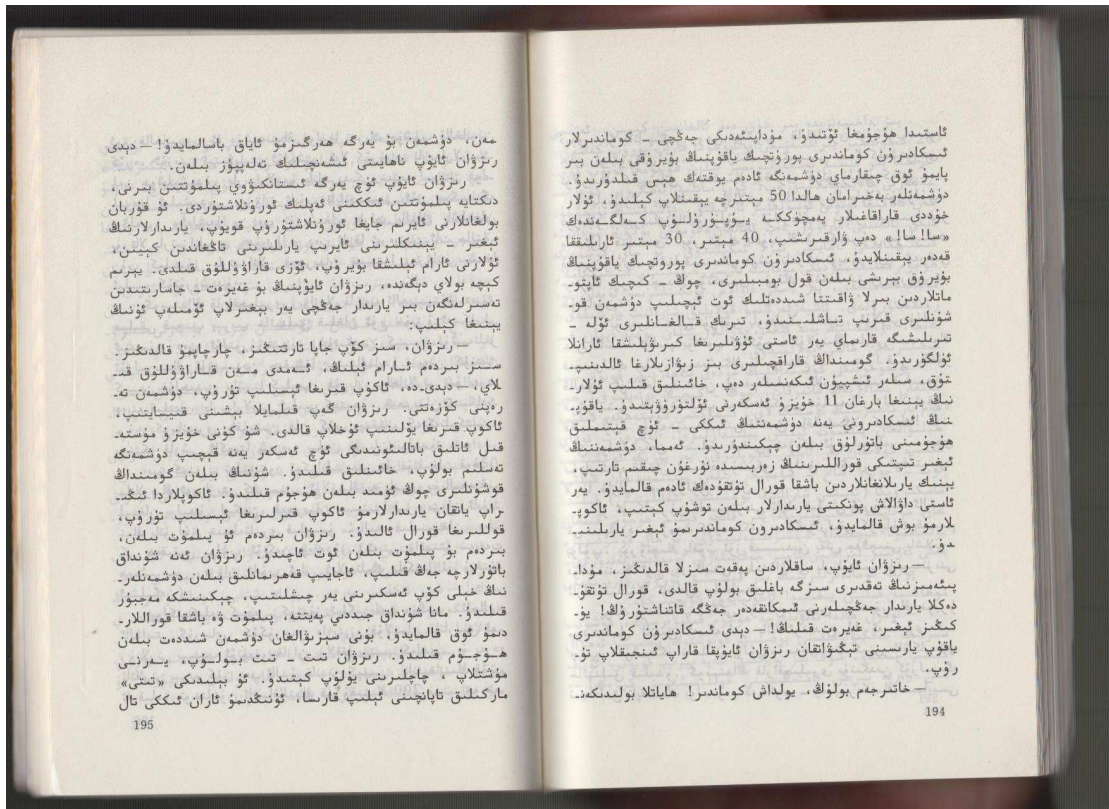 ئاستىدا ھۇجۇمغا ئۆتىدۇ، مۇداپىئەدىكى جەڭچى ـ كوماندىرلار
ئىسكادىرۇن كوماندىرى پورۇتچىك ياقۇپنىڭ بۇيرۇقى بىلەن بىر
پايمۇ ئوق چىقارماي دۈشمەنگە ئادەم يوقتەك ھېس قىلدۇرىدۇ.
دۈشمەنلەر بەخىرامان ھالدا 50 مېتىرچە يېقىنلاپ كېلىدۇ، ئۇلار
خۇددى قاراقاغىلار پەمچۇككە يىۋپىۇرۇلىۇپ كىەلگىەندەك
«سا! سا!» دەپ ۋارقىرىشىپ، 40 مېتىر، 30 مېتىر ئارىلىققا
قەدەر يېقىنلايدۇ، ئىسكادىرۇن كوماندىرى پوروتچىك ياقۇپنىڭ
بۇيرۇق بېرىشى بىلەن قول بومبىلىرى، چوڭ ـ كىچىك ئاپتو-
ماتلاردىن بىرلا ۋاقىتتا شىددەتلىك ئوت ئېچىلىپ دۈشمەن قو-
شۇنلىرى قىرىپ تىاشلىىنىدۇ، تىرىك قىالغىانلىرى ئۆلە ـ
تىرىلىشىگە قارىماي يەر ئاستى ئۆۋىلىرىغا كىرىۋېلىشقا ئارانلا
ئۈلگۈرىدۇ. گومىنداڭ قاراقچىلىرى بىز زىۋازىلارغا ئالدىنىپ-
تۇق، سىلەر ئىشپىيۇن ئىكەنسىلەر دەپ، خائىنلىق قىلىپ ئۇلار-
نىڭ يېنىغا بارغان 11 خۇيزۇ ئەسكەرنى ئۆلتۈرۈۋېتىدۇ. ياقۇپ-
نىڭ ئىسكادىرونى يەنە دۈشمەننىڭ ئىككى ـ ئۈچ قېتىملىق
ھۇجۇمىنى باتۇرلۇق بىلەن چېكىندۈرىدۇ. ئەمما، دۈشمەننىڭ
ئېغىر تىپتىكى قوراللىرىنىڭ زەربىسىدە نۇرغۇن چىقىم تارتىپ،
يېنىك يارىلانغانلاردىن باشقا قورال تۇتقۇدەك ئادەم قالمايدۇ. يەر
ئاستى داۋالاش پونكىتى يارىدارلار بىلەن توشۇپ كېتىپ، ئاكوپ-
لارمۇ بوش قالمايدۇ، ئىسكادىرون كوماندىرىمۇ ئېغىر يارىلىنى-
دۇ.
— رىزۋان ئايۇپ، ساقلاردىن پەقەت سىزلا قالدىڭىز، مۇدا-
پىئەمىزنىڭ تەقدىرى سىزگە باغلىق بولۇپ قالدى، قورال تۇتقۇ-
دەكلا يارىدار جەڭچىلەرنى ئىمكانقەدەر جەڭگە قاتناشتۇرۇڭ! يۈ-
كىڭىز ئېغىر، غەيرەت قىلىڭ! — دېدى ئىسكادىرۇن كوماندىرى
ياقۇپ يارىسىنى تېڭىۋاتقان رىزۋان ئايۇپقا قاراپ ئىنجىقلاپ تۇ-
رۇپ.
— خاتىرجەم بولۇڭ، يولداش كوماندىر! ھاياتلا بولىدىكەنـ
194
مەن، دۈشمەن بۇ يەرگە ھەرگىزمۇ ئاياق باسالمايدۇ! — دېدى
رىزۋان ئايۇپ ناھايىتى ئىشەنچلىك تەلەپپۇز بىلەن.
رىزۋان ئايۇپ ئۈچ يەرگە ئىستانكىۋوي پىلمۇتتىن بىرنى،
دىكتايە پىلمۇتتىن ئىككىنى ئەپلىك ئورۇنلاشتۇردى. ئۇ قۇربان
بولغانلارنى ئايرىم جايغا ئورۇنلاشتۇرۇپ قويۇپ، يارىدارلارنىڭ
ئېغىر ـ يېنىكلىرىنى ئايرىپ يارىلىرىنى تاڭغاندىن كېيىن،
ئۇلارنى ئارام ئېلىشقا بۇيرۇپ، ئۆزى قاراۋۇللۇق قىلدى. يېرىم
كېچە بولاي دېگەندە، رىزۋان ئايۇپنىڭ بۇ غەيرەت ـ جاسارىتىدىن
تەسىرلەنگەن بىر يارىدار جەڭچى يەر بېغىرلاپ ئۆمىلەپ ئۇنىڭ
يېنىغا كېلىپ:
— رىزۋان، سىز كۆپ جاپا تارتتىڭىز، چارچاپمۇ قالدىڭىز.
سىىز بىردەم ئىارام ئېلىڭ، ئىەمدى مىەن قىاراۋۇللۇق قىـ
لاي، — دېدى-دە، ئاكوپ قىرىغا ئېسىلىپ تۇرۇپ، دۈشمەن تە-
رەپنى كۆزەتتى. رىزۋان گەپ قىلمايلا بېشىنى قىيسايتىپ،
ئاكوپ قىرىغا يۆلىنىپ ئۇخلاپ قالدى. شۇ كۈنى خۇيزۇ مۇستە-
قىل ئاتلىق باتالىئونىدىكى ئۈچ ئەسكەر يەنە قېچىپ دۈشمەنگە
تەسلىم بولۇپ، خائىنلىق قىلىدۇ. شۇنىڭ بىلەن گومىنداڭ
قوشۇنلىرى چوڭ ئۈمىد بىلەن ھۇجۇم قىلىدۇ. ئاكوپلاردا ئىڭـ
راپ ياتقان يارىدارلارمۇ ئاكوپ قىرلىرىغا ئېسىلىپ تۇرۇپ،
قوللىرىغا قورال ئالىدۇ. رىزۋان بىردەم ئۇ پىلمۇت بىلەن،
بىردەم بۇ پىلمۇت بىلەن ئوت ئاچىدۇ. رىزۋان ئەنە شۇنداق
باتۇرلارچە جەڭ قىلىپ، ئاجايىپ قەھرىمانلىق بىلەن دۈشمەنلەر-
نىڭ خېلى كۆپ ئەسكىرىنى يەر چىشلىتىپ، چېكىنىشكە مەجبۇر
قىلىدۇ. مانا شۇنداق جىددىي پەيتتە، پىلمۇت ۋە باشقا قوراللار-
دىمۇ ئوق قالمايدۇ، بۇنى سېزىۋالغان دۈشمەن شىددەت بىلەن
ھىۇجىۇم قىلىدۇ. رىزۋان تىت ـ تىت بىولىۇپ، يىەرنىى
مۇشتلاپ، چاچلىرىنى يۇلۇپ كېتىدۇ. ئۇ بېلىدىكى «تىتى»
ماركىلىق تاپانچىنى ئېلىپ قارىسا، ئۇنىڭدىمۇ ئاران ئىككى تال
195